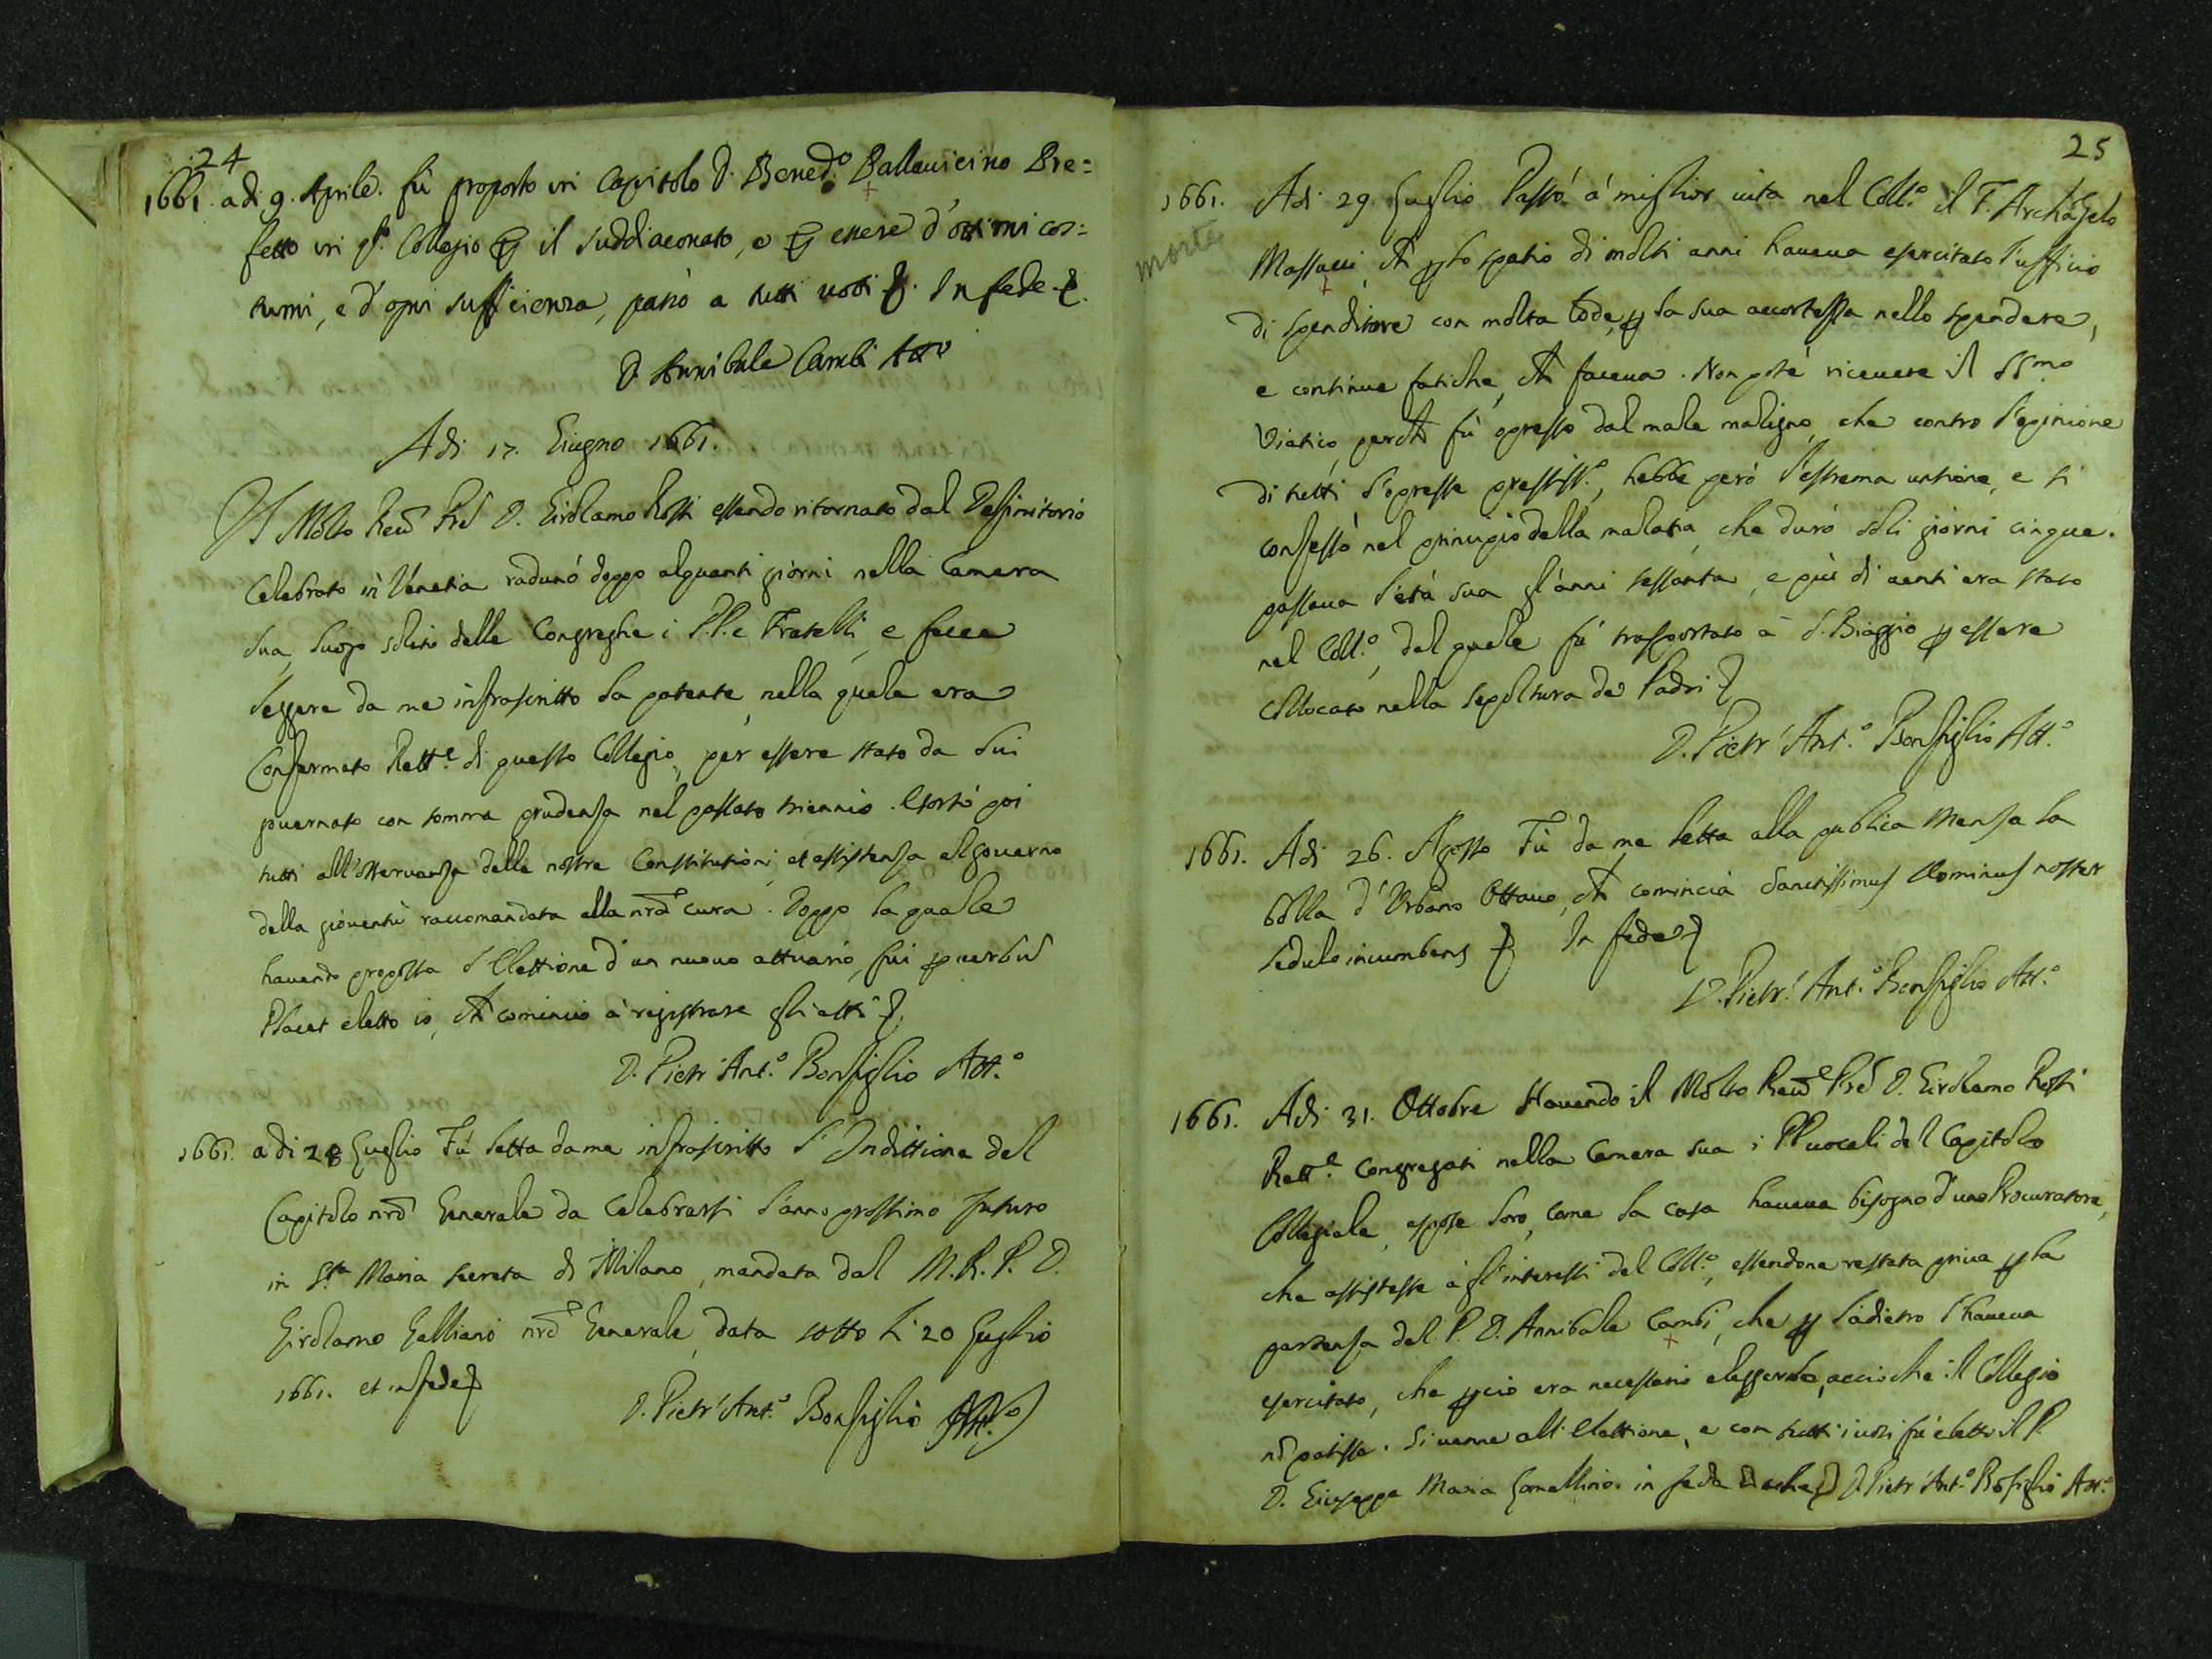 24
1661. adi 9. Aprile. fù proposto in Capitolo D. Bened.º Pallavicino Pre=
fetto in qsto Collegio p il suddiaconato, e p essere d'ottimi cos=
tumi, e d'ogni sufficienza, passò a tutti voti &. In fede &.
D Annibale Cambi Att.º
Adi 17. Giugno 1661.
Il Molto Reu Pre D. Girolamo Rossi essendo ritornato dal Deffinitorio
Celebrato in Venetia radunò doppo alquanti giorni nella Camera
sua, luogo solito delle Congreghe i P.P. e Fratelli, e fece
leggere da me infrascritto la patente, nella quale era
Confermato Rett.e di questo Collegio, per essere stato da lui
gouernato con somma prudenza nel passato triennio. Esortò poi
tutti all'osseruanza delle nostre Constitutioni, et assistenza al gouerno
della giouentù raccomandata alla nra cura. Doppo la quale
hauendo proposta l'Elettione d'un nuouo attuario, fui p uerbum
Placet eletto io, che comincio à registrare gli atti &.
D. Pietr' Ant.º Bonfiglio Att.º
1661. adi 28 Luglio Fù letta da me infrascritto l'Indittione del
Capitolo nro Generale da Celebrarsi l'anno prossimo futuro
in S.ta Maria secreta di Milano, mandata dal M.R.P.D.
Girolamo Galliani nro Generale, data sotto li 20 Luglio
1661. et in fede &
D. Pietr' Ant.º Bonfiglio Att.º
25
1661. Adi 29. Luglio Passò à miglior uita nel Coll.º il F. Archãgelo
morte
Massucci, che p lo spatio di molti anni haueua esercitato l'ufficio
di spenditore con molta lode, p la sua accortezza nello spendere,
e continue fatiche, che faceua. Non potè riceuere il SSmo
Viatico, perche fù opresso dal male maligno, che contro l'opinione
di tutti l'opresse prestiss.º, hebbe però l'estrema untione, e si
confessò nel principio della malatia, che durò soli giorni cinque.
passaua l'età sua gl'anni sessanta, e più di uenti era stato
nel Coll.º, dal quale fù trasportato à S. Biaggio p essere
collocato nella sepoltura de Padri &
D. Pietr' Ant.º Bonfiglio Att.º
1661. Adi 26. Agosto Fù da me letta alla publica Mensa la
bolla d'Urbano Ottauo, che comincia Sanctissimus Dominus noster
sedulo incumbens & In fede &
D. Pietr' Ant.º Bonfiglio Att.º
1661. Adi 31. Ottobre Hauendo il Molto Reu Pre D. Girolamo Rossi
Rett.e Congregati nella Camera sua i PP uocali del Capitolo
Collegiale, espose loro, come la casa haueua bisogno d'uno Procuratore,
che assistesse à gl'interessi del Coll.º, essendone restata priua p la
partenza del P. D. Annibale Cambi, che p l'adietro l'haueua
esercitato, che p ciò era necessario eleggerlo, accioche il Collegio
nõ patisse. Si uenne all'Elettione, e con tutti i uoti fù eletto il P.
D. Giuseppe Maria Gomellino. in fede D. Pietr' Ant.º Bõfiglio Att.º